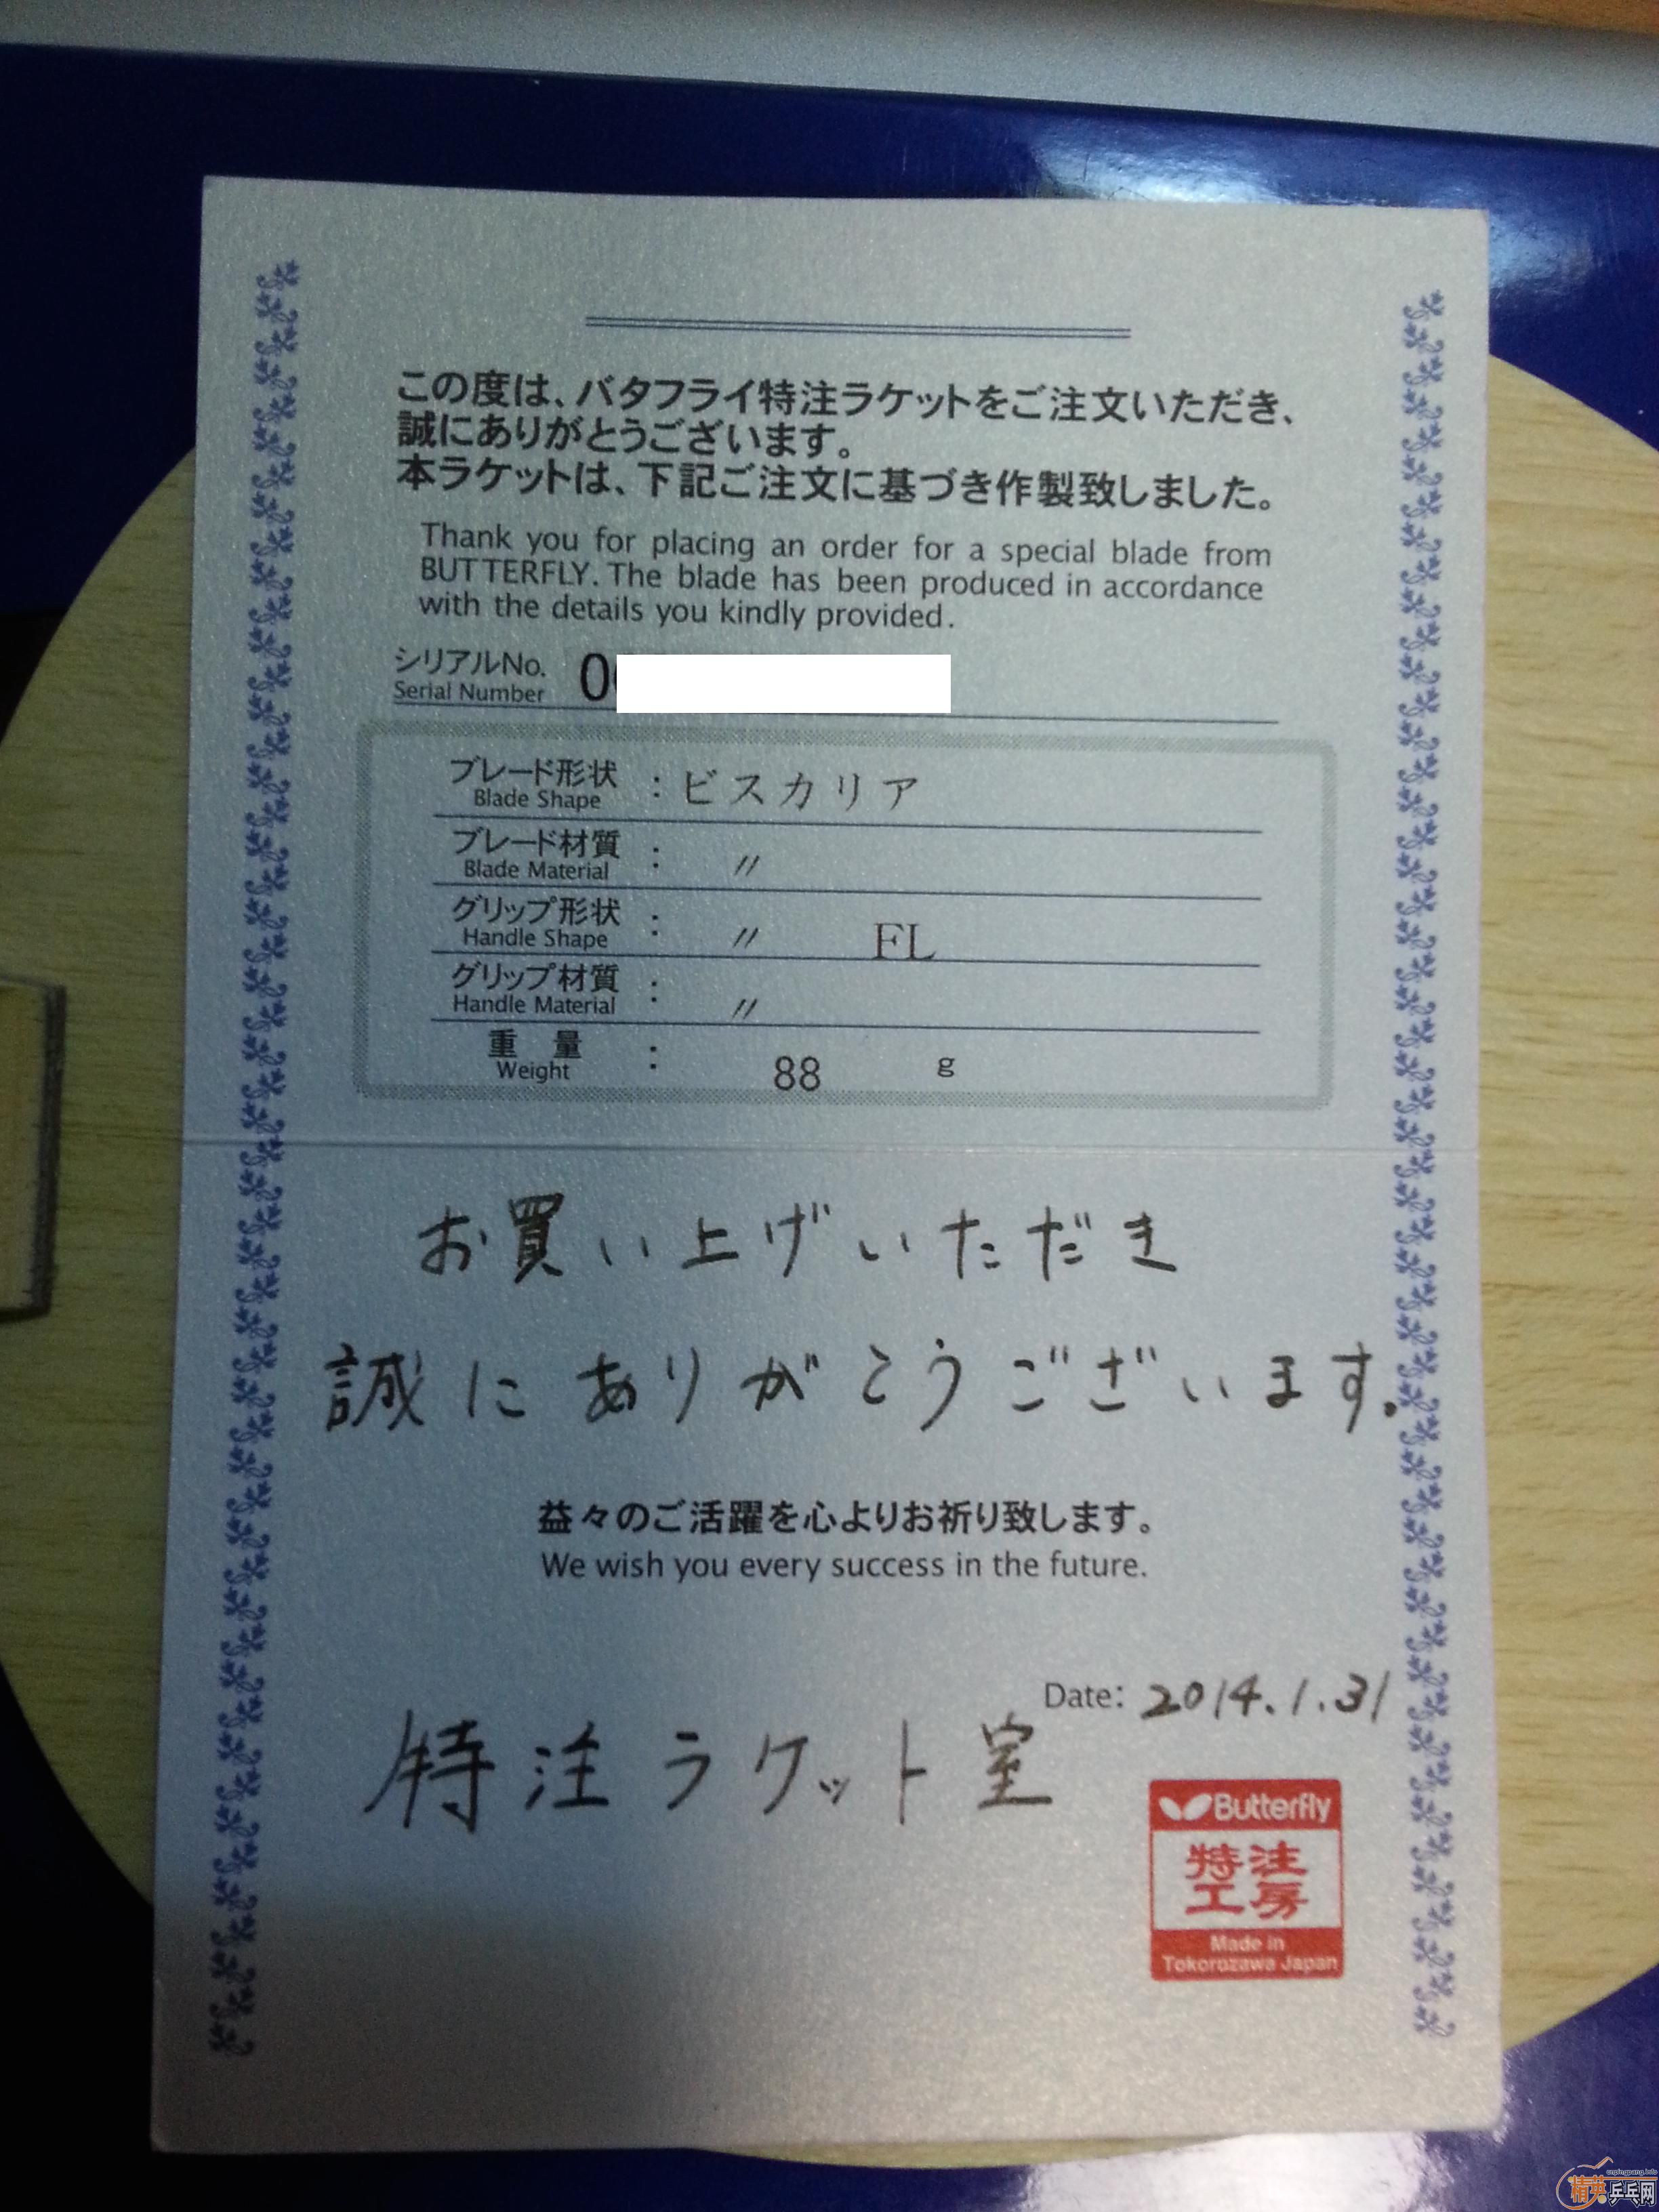 この度は、バタフライ特注ラケットをご注文いただき、
誠にありがとうございます。
本ラケットは、下記ご注文に基づき作製致しました。
Thank you for placing an order for a special blade from
BUTTERFLY. The blade has been produced in accordance
with the details you kindly provided.
シリアルNo. 0
Serial Number
ブレード形状 : ビスカリア
Blade Shape
ブレード材質 : 〃
Blade Material
グリップ形状 : 〃 FL
Handle Shape
グリップ材質 : 〃
Handle Material
重量 : 88 g
Weight
お買い上げいただき
誠にありがとうございます.
益々のご活躍を心よりお祈り致します。
We wish you every success in the future.
Date: 2014.1.31
特注ラケット室
Butterfly
特注
工房
Made in
Tokorozawa Japan
cnpingpang.info
精英乒乓网